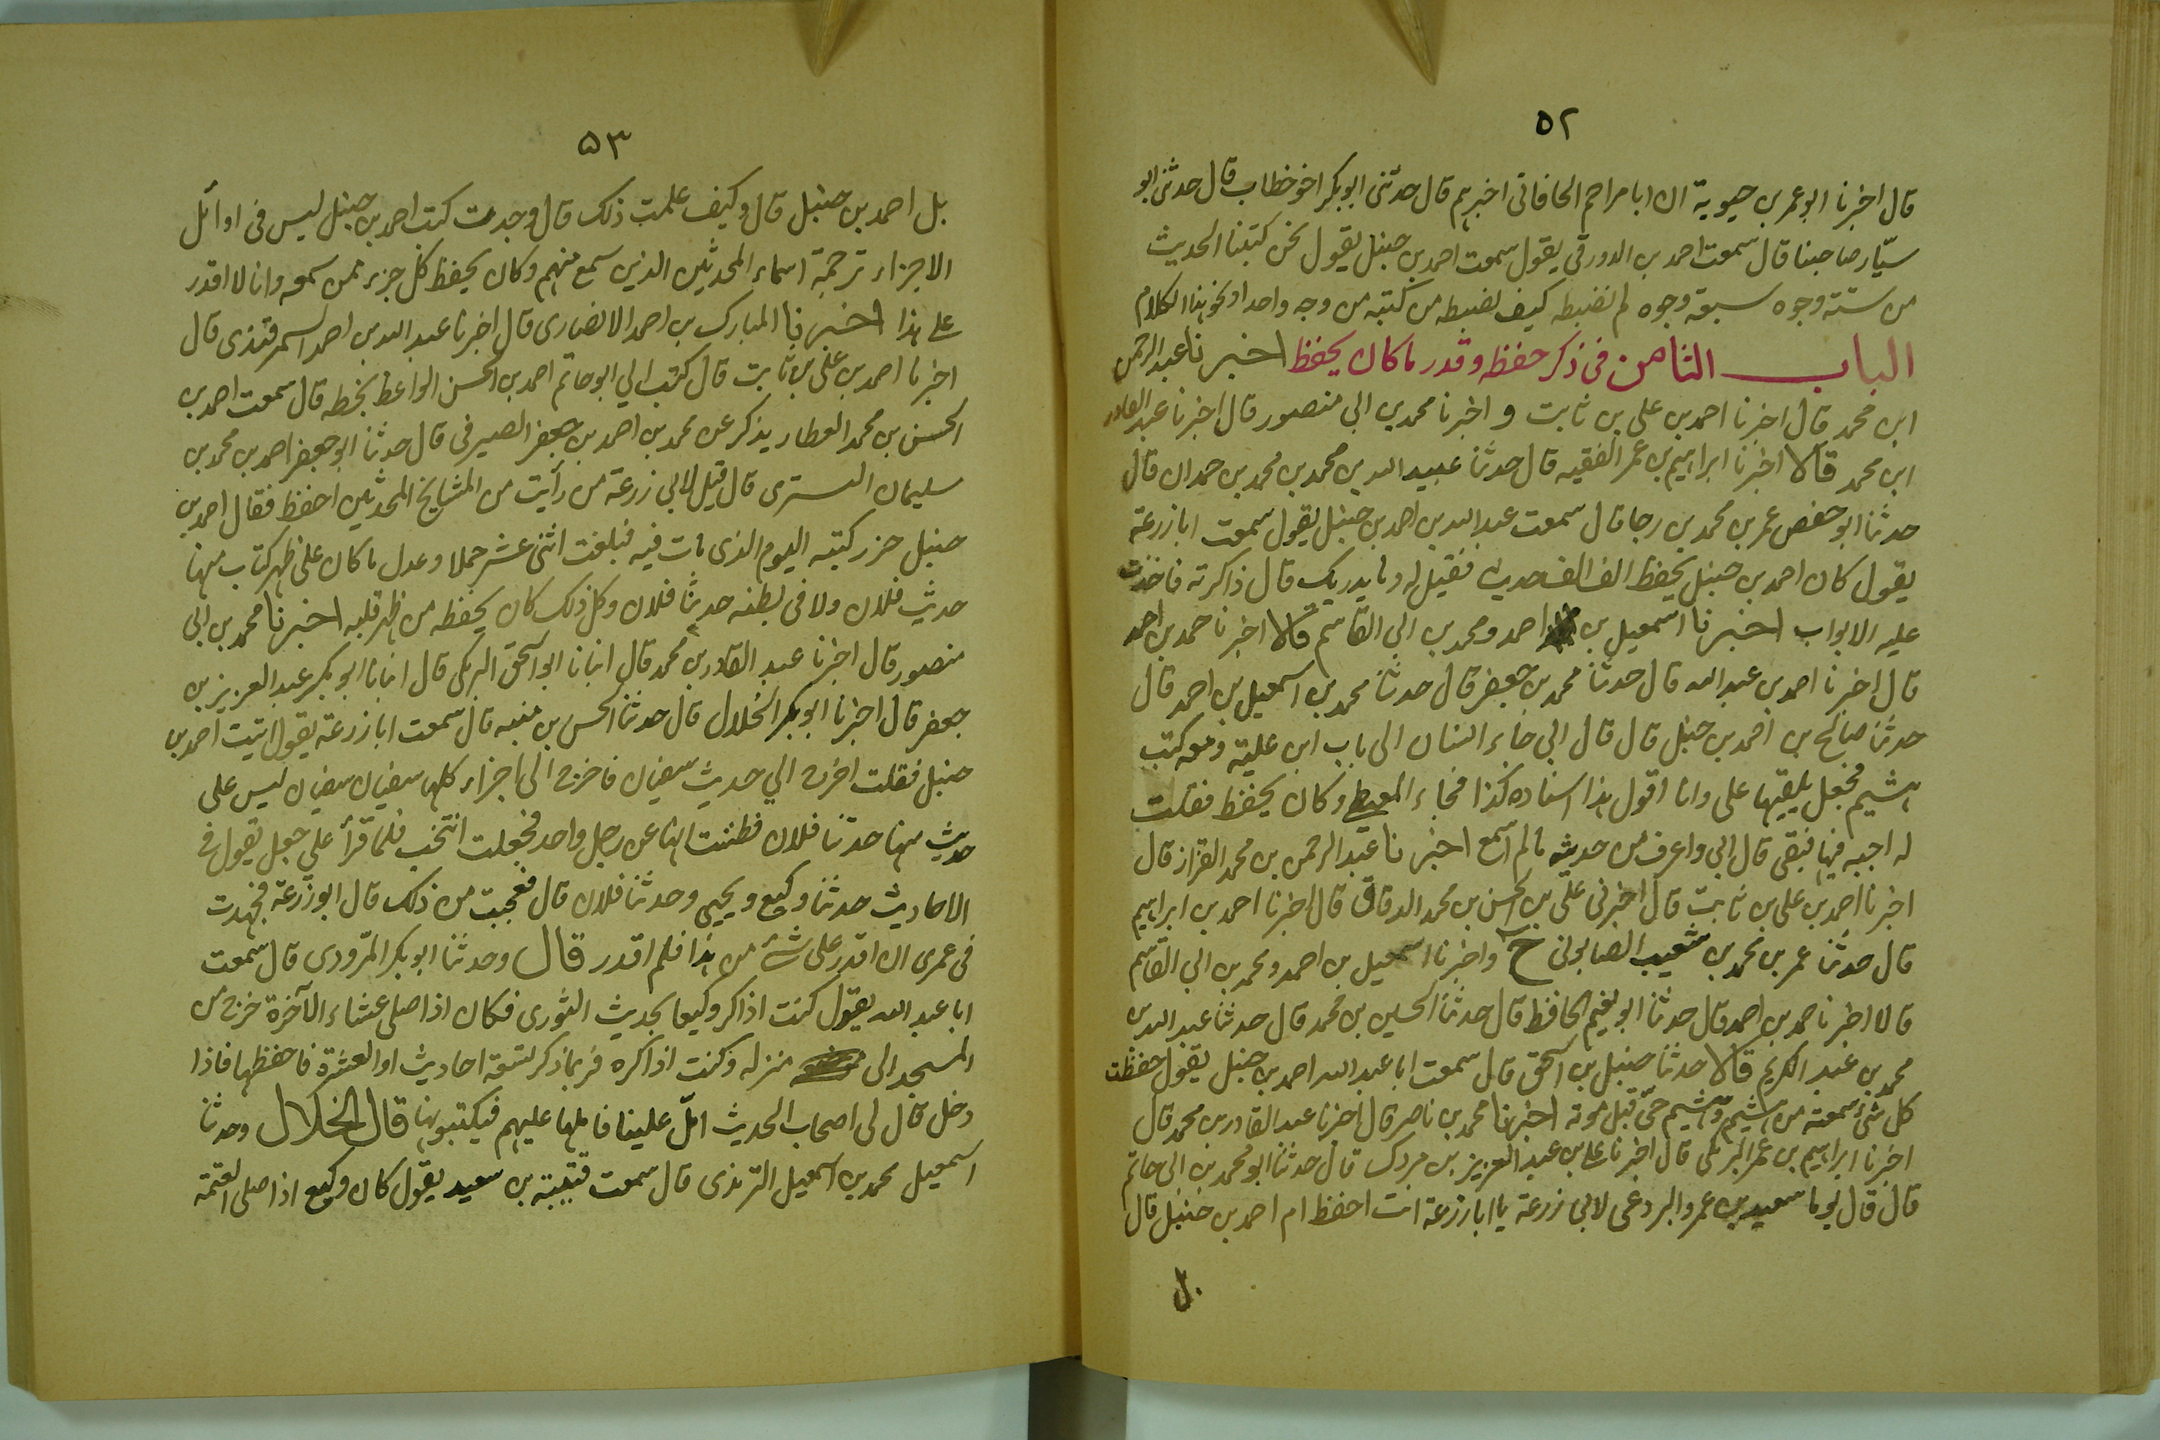 ٥٢
قال اخبرنا ابو عمر بن حيوية ان ابا مزاحم الخاقانى اخبرهم قال حدثنى ابو بكر اخو خطاب قال حدثنى ابو
سيّار صاحبنا قال سمعت احمد بن الدورقى يقول سمعت احمد بن حنبل يقول نحن كتبنا الحديث
من ستة وجوه سبعة وجوه لم نضبطه كيف يضبطه من كتبه من وجه واحد او نحو هذا الكلام
الباب الثامن فى ذكر حفظه وقدر ما كان يحفظ اخبرنا عبد الرحمن
ابن محمد قال اخبرنا احمد بن على بن ثابت و اخبرنا محمد بن ابى منصور قال اخبرنا عبد القادر
ابن محمد قالا اخبرنا ابراهيم بن عمر الفقيه قال حدثنا عبيد الله بن محمد بن محمد بن حمدان قال
حدثنا ابو حفص عمر بن محمد بن رجا قال سمعت عبد الله بن احمد بن حنبل يقول سمعت ابا زرعة
يقول كان احمد بن حنبل يحفظ الف الف حديث فقيل له وما يدريك قال ذاكرته فاخذت
عليه الابواب اخبرنا اسمعيل بن احمد ومحمد بن ابى القاسم قالا اخبرنا حمد بن احمد
قال اخبرنا احمد بن عبد الله قال حدثنا محمد بن جعفر قال حدثنا محمد بن اسمعيل بن احمد قال
حدثنا صالح بن احمد بن حنبل قال قال ابى جاء انسان الى باب ابن علية ومعه كتب
هشيم فجعل يلقيها على وانا اقول هذا اسناده كذا فجاء المعيطى وكان يحفظ فقلت
له اجبه فيها فبقى قال ابى واعرف من حديثه ما لم اسمع اخبرنا عبد الرحمن بن محمد القزاز قال
اخبرنا احمد بن على بن ثابت قال اخبرنى على بن الحسن بن محمد الدقاق قال اخبرنا احمد بن ابراهيم
قال حدثنا عمر بن محمد بن شعيب الصابونى ح واخبرنا اسمعيل بن احمد ومحمد بن ابى القاسم
قالا اخبرنا حمد بن احمد قال حدثنا ابو نعيم الحافظ قال حدثنا الحسين بن محمد قال حدثنا عبد الله بن
محمد بن عبد الكريم قالا حدثنا حنبل بن اسحق قال سمعت ابا عبد الله احمد بن حنبل يقول حفظت
كل شئ سمعته من هشيم وهشيم حىّ قبل موته اخبرنا محمد بن ناصر قال اخبرنا عبد القادر بن محمد قال
اخبرنا ابراهيم بن عمر البرمكى قال اخبرنا على بن عبد العزيز بن مردك قال حدثنا ابو محمد بن ابى حاتم
قال قال يوما سعيد بن عمرو البردعى لابى زرعة يا ابا زرعة انت احفظ ام احمد بن حنبل قال
بل
٥٣
بل احمد بن حنبل قال وكيف علمت ذلك قال وجدت كتب احمد بن حنبل ليس فى اوائل
الاجزاء ترجمة اسماء المحدثين الذين سمع منهم وكان يحفظ كل جزء ممن سمعه وانا لا اقدر
على هذا اخبرنا المبارك بن احمد الانصارى قال اخبرنا عبد الله بن احمد السمرقندى قال
اخبرنا احمد بن على بن ثابت قال كتب الى ابو حاتم احمد بن الحسن الواعظ بخطه قال سمعت احمد بن
الحسن بن محمد العطار يذكر عن محمد بن احمد بن جعفر الصيرفى قال حدثنا ابو جعفر احمد بن محمد بن
سليمان التسترى قال قيل لابى زرعة من رأيت من المشايخ المحدثين احفظ فقال احمد بن
حنبل حزر كتبه اليوم الذى مات فيه فبلغت اثنى عشر حملا وعدل ما كان على ظهر كتاب منها
حديث فلان ولا فى بطنه حدثنا فلان وكل ذلك كان يحفظه من ظهر قلبه اخبرنا محمد بن ابى
منصور قال اخبرنا عبد القادر بن محمد قال انبانا ابو اسحق البرمكى قال انبانا ابو بكر عبد العزيز بن
جعفر قال اخبرنا ابو بكر الخلال قال حدثنا الحسن بن منبه قال سمعت ابا زرعة يقول اتيت احمد بن
حنبل فقلت اخرج الي حديث سفيان فاخرج الى اجزاء كلها سفيان سفيان ليس على
حديث منها حدثنا فلان فظننت انها عن رجل واحد فجعلت انتخب فلما قرأ علي جعل يقول فى
الاحاديث حدثنا وكيع ويحيى وحدثنا فلان قال فعجبت من ذلك قال ابو زرعة فجهدت
فى عمرى ان اقدر على شئ من هذا فلم اقدر قال وحدثنا ابو بكر المرّودى قال سمعت
ابا عبد الله يقول كنت اذاكر وكيعا بحديث الثورى فكان اذا صلى عشاء الآخرة خرج من
المسجد الى منزله وكنت اذاكره فربما ذكر تسعة احاديث او العشرة فاحفظها فاذا
دخل قال لى اصحاب الحديث املّ علينا فاملها عليهم فيكتبونها قال الخلال وحدثنا
اسمعيل محمد بن اسمعيل الترمذى قال سمعت قتيبة بن سعيد يقول كان وكيع اذا صلى العتمة